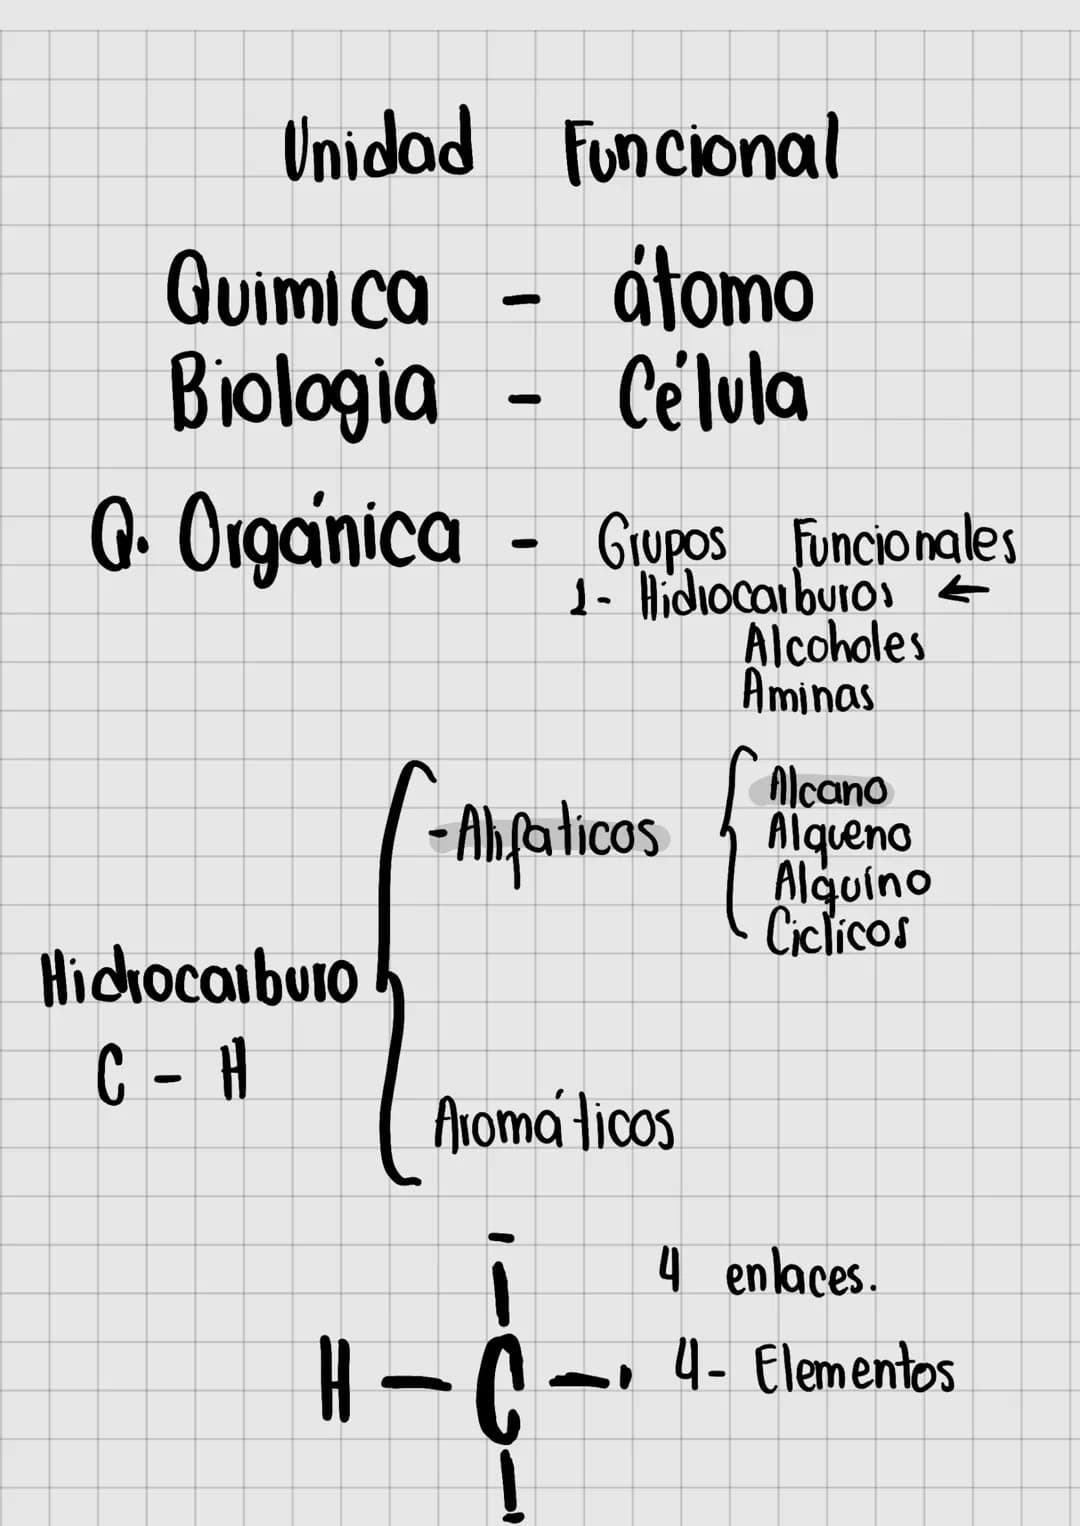 Unidad Funcional
Quimica - átomo
Biologia - Célula
Q. Orgánica - Grupos Funcionales
1- Hidrocarburos ←
Alcoholes
Aminas
Hidrocarburo
C - H
-Alifaticos
Alcano
Alqueno
Alquíno
Ciclicos
Aromáticos
4 enlaces.
H - C -
4- Elementos